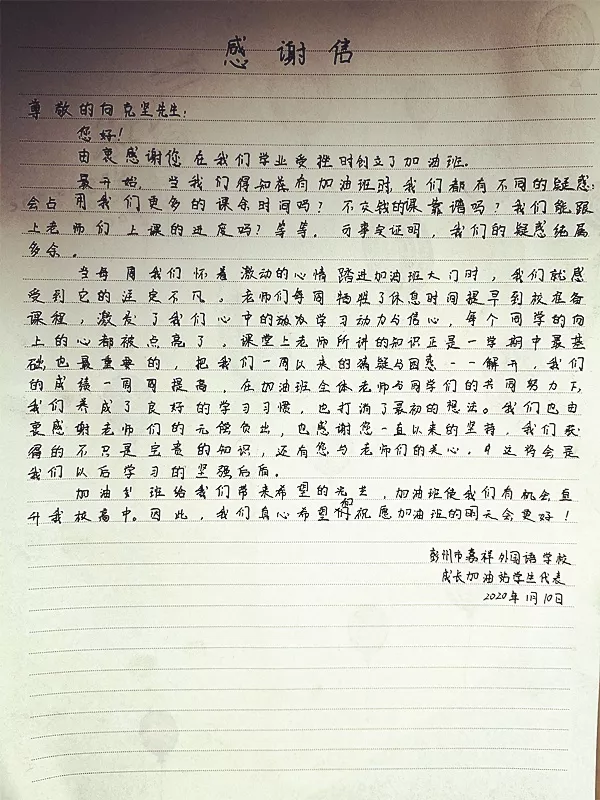 感谢信
尊敬的向克坚先生:
您好!
由衷感谢您在我们学业受挫时创立了加油班。
最开始,当我们得知在有加油班时,我们都有不同的疑惑:
会占用我们更多的课余时间吗?不交钱的课靠谱吗?我们能跟
上老师们上课的进度吗?等等。可事实证明,我们的疑惑纯属
多余。
当每周我们怀着激动的心情踏进加油班大门时,我们就感
受到它的注定不凡。老师们每周牺牲了休息时间提早到校准备
课程,激发了我们心中的激发学习动力与信心,每个同学的向
上的心都被点亮了。课堂上老师所讲的知识正是一学期中最基
础,也最重要的,把我们一周以来的猜疑与困惑一一解开,我们
的成绩一周周提高,在加油班全体老师与同学们的共同努力下,
我们养成了良好的学习习惯,也打消了最初的想法。我们也由
衷感谢老师们的无偿负出,也感谢您一直以来的坚持,我们获
得的不只是宝贵的知识,还有您与老师们的关心,这将会是
我们以后学习的坚强后盾。
加油班给我们带来希望的光芒,加油班使我们有机会直
升我校高中。因此,我们真心希望和祝愿加油班的明天会更好!
彭州市嘉祥外国语学校
成长加油站学生代表
2020年1月10日